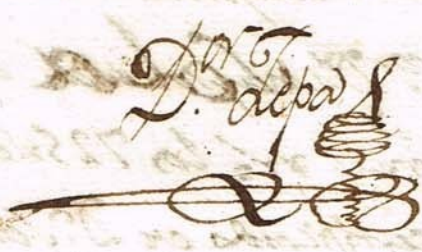 D.ᵒʳ Zepa